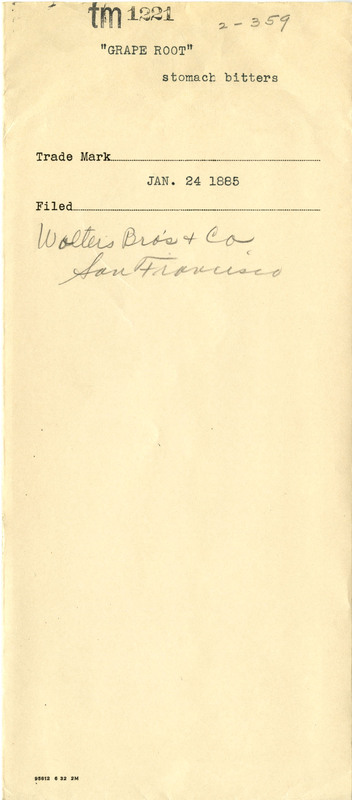 tm 1221
2-359
"GRAPE ROOT"
stomach bitters
Trade Mark
JAN. 24 1885
Filed
Wolters Bro's + Co
San Francisco
95612 6 32 2M